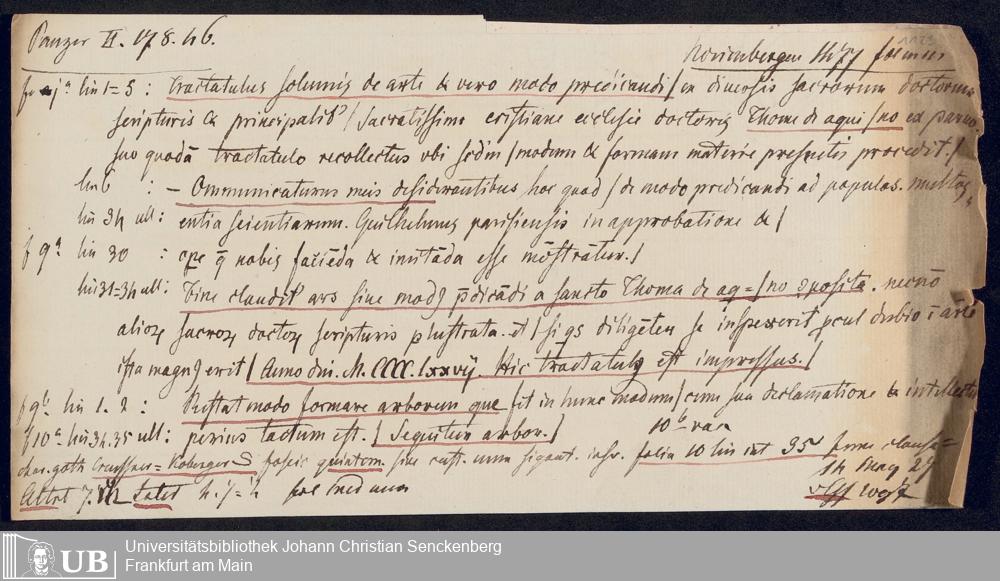 Panzer II. 178. 46.
1123
Norimbergae 1477
f 1ª lin 1=5 : Tractatulus solennis de arte & vero modo predicandi / ex diversis sacrorum doctorum
scripturis & principalit' / Sacratissimi cristiane ecclesie doctoris Thome de aqui / no ex parvo
suo quodā tractatulo recollectus vbi scdm / modum & formam materie presentis procedit. /
lin 6 : – Communicaturus meis desiderantibus hoc quod / de modo predicandi ad populos.
lin 34 ult : entia scientiarum. Guilhelmus parisiensis in approbatione & /
f 9ª lin 30 : ope q̄ nobis faciēda & imitāda esse mōstrātur. /
lin 31=34 ult : Fine claudit ars sive modꝰ p̄dicādi a sancto Thoma de aq= / no . necnō
alioꝝ sacroꝝ doctoꝝ scripturis plustrata. et / si qs diligēter se inspexerit pcul dubio ī arte
ista magnꝰ erit / Anno dni. M. CCCC. lxxvij. Hic tractatulꝰ est impressus. /
f 9b lin 1. 2 : Restat modo formare arborem que fit in hunc modum / cum sua declamatione &
f 10ª lin 34. 35 ult : perius tactum est. / Sequitur arbor. / 10b vac
char. goth Creussner= Koberger S sine cust. num signat. folia 10 lin int 35
14 May 29
Attrt Patet